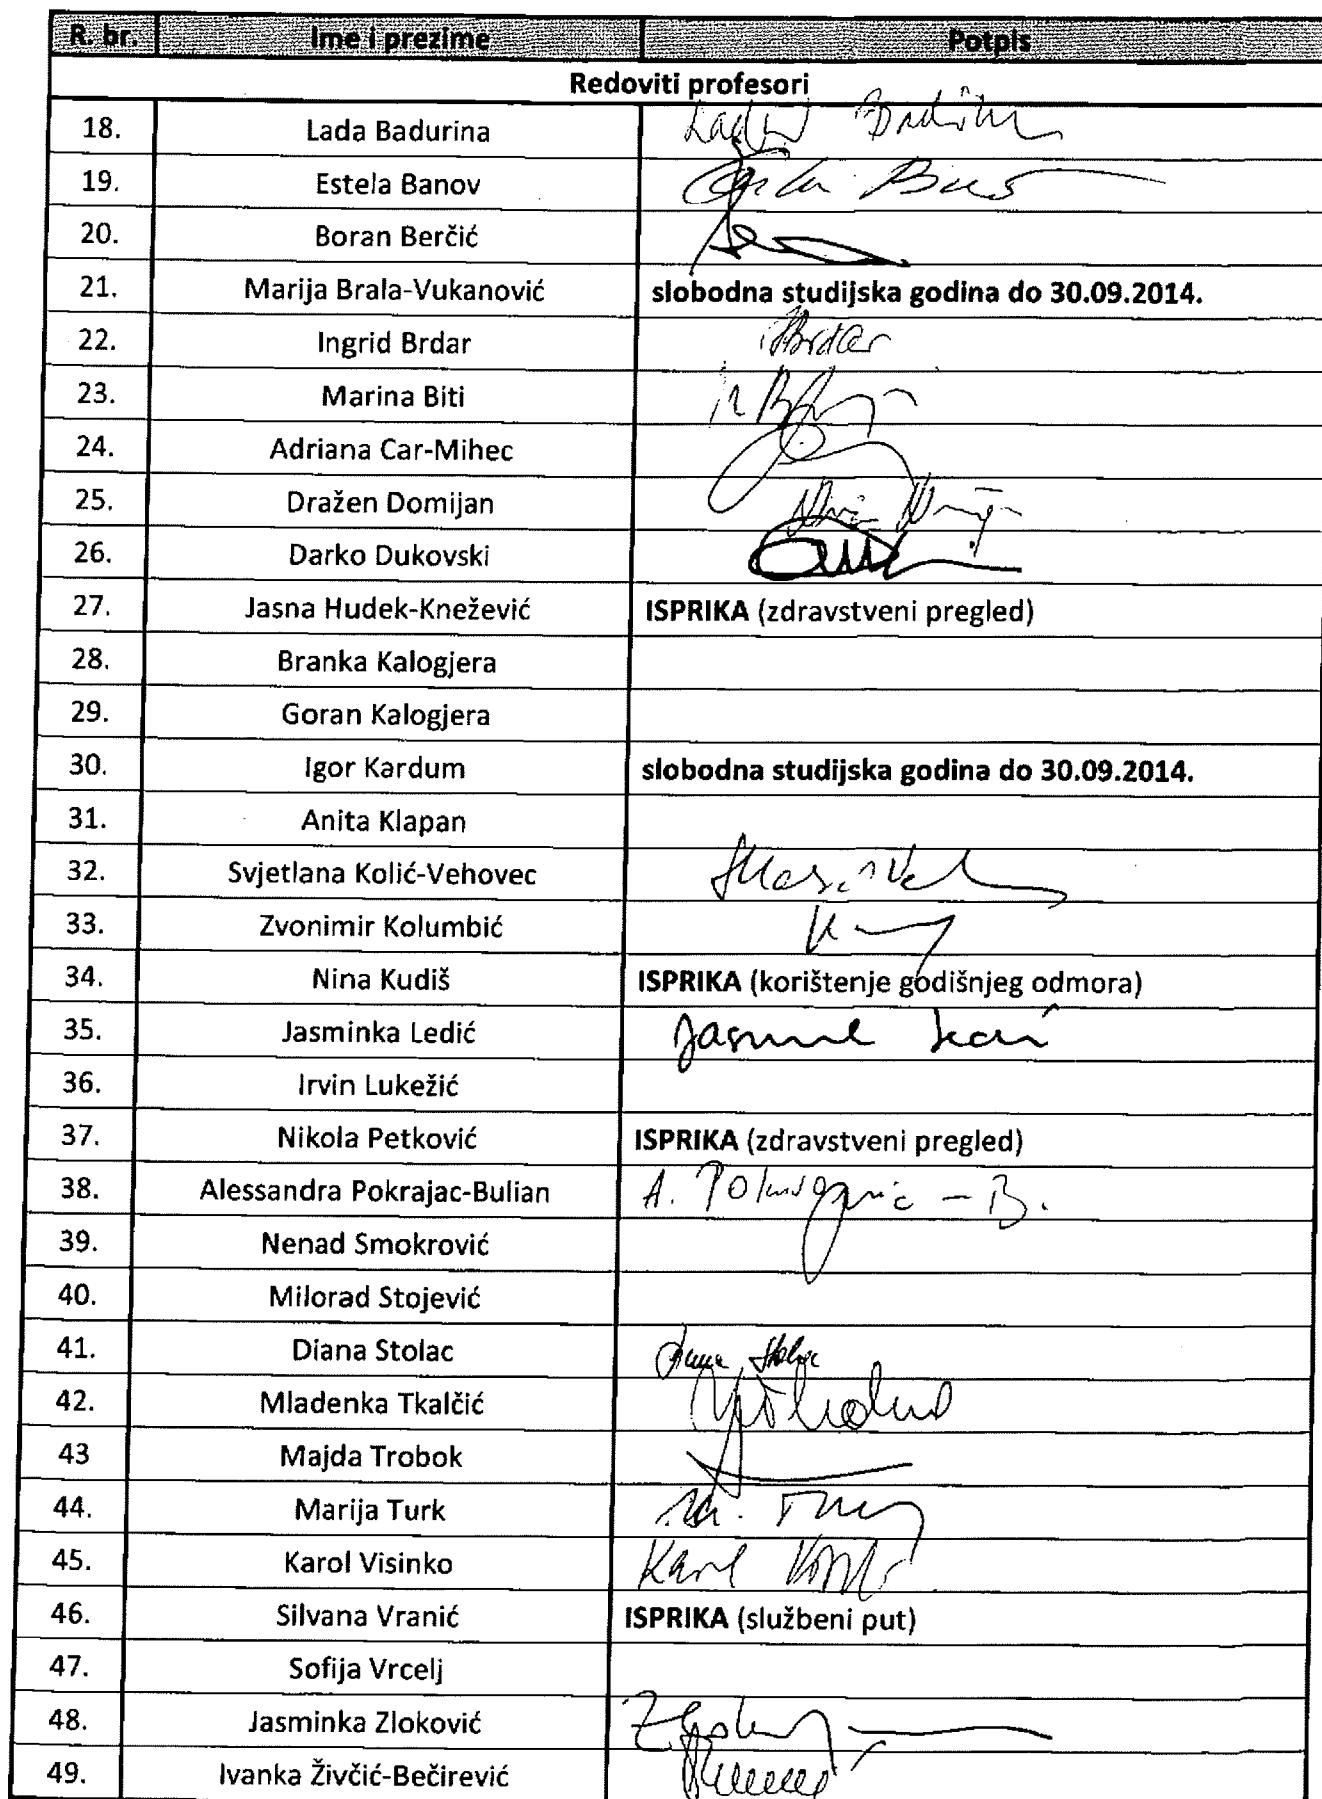 R. br. Ime i prezime Potpis
Redoviti profesori
18. Lada Badurina
19. Estela Banov
20. Boran Berčić
21. Marija Brala-Vukanović slobodna studijska godina do 30.09.2014.
22. Ingrid Brdar Brdar
23. Marina Biti
24. Adriana Car-Mihec
25. Dražen Domijan
26. Darko Dukovski
27. Jasna Hudek-Knežević ISPRIKA (zdravstveni pregled)
28. Branka Kalogjera
29. Goran Kalogjera
30. Igor Kardum slobodna studijska godina do 30.09.2014.
31. Anita Klapan
32. Svjetlana Kolić-Vehovec
33. Zvonimir Kolumbić
34. Nina Kudiš ISPRIKA (korištenje godišnjeg odmora)
35. Jasminka Ledić
36. Irvin Lukežić
37. Nikola Petković ISPRIKA (zdravstveni pregled)
38. Alessandra Pokrajac-Bulian
39. Nenad Smokrović
40. Milorad Stojević
41. Diana Stolac
42. Mladenka Tkalčić
43 Majda Trobok
44. Marija Turk
45. Karol Visinko
46. Silvana Vranić ISPRIKA (službeni put)
47. Sofija Vrcelj
48. Jasminka Zloković
49. Ivanka Živčić-Bečirević